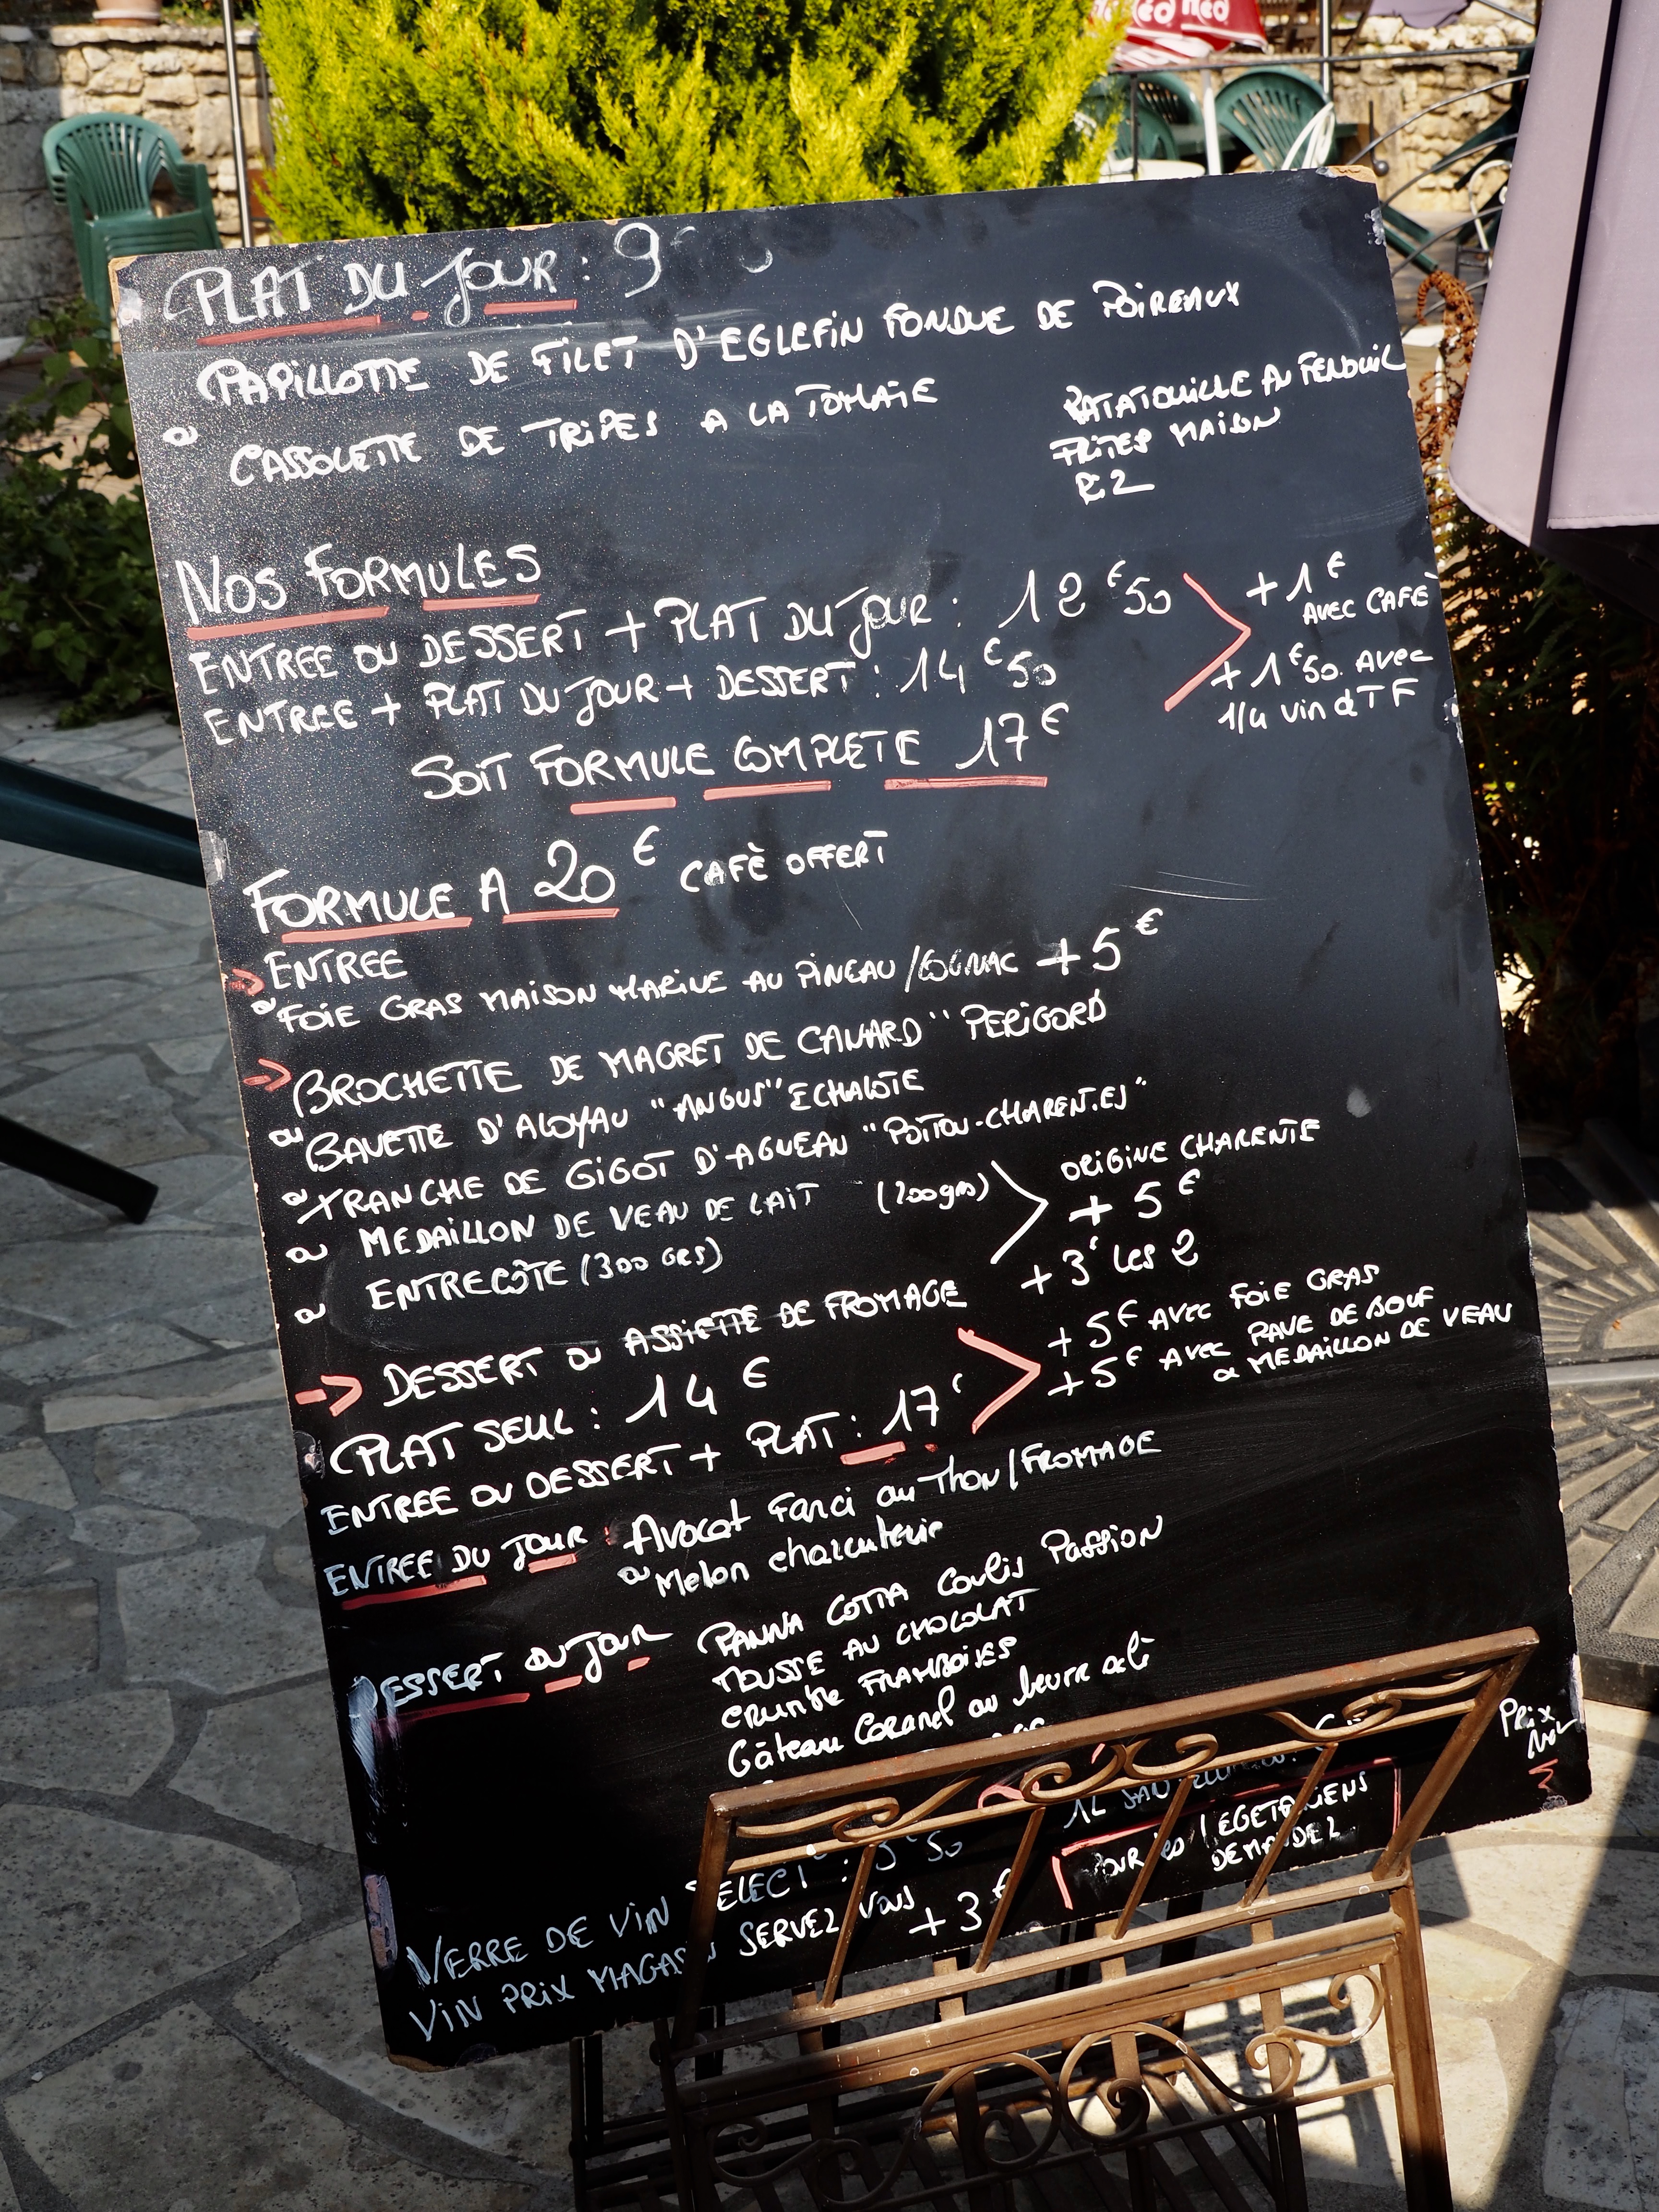 PLAT DU JOUR : 9
PAPILLOTTE DE FILET D'EGLEFIN FONDUE DE POIREAUX
ou CASSOLETTE DE TRIPES A LA TOMATE
RATATOUILLE AU FENOUIL
FRITES MAISON
RIZ
NOS FORMULES
ENTREE OU DESSERT + PLAT DU JOUR : 12€50
ENTREE + PLAT DU JOUR + DESSERT : 14€50
+ 1€
AVEC CAFÉ
+ 1€50 AVEC
1/4 vin d TF
SOIT FORMULE COMPLETE 17€
FORMULE A 20€ CAFÈ OFFERT
ENTREE
ou FOIE GRAS MAISON MARINE AU PINEAU/COGNAC + 5€
BROCHETTE DE MAGRET DE CANARD "PERIGORD
ou BAVETTE D'ALOYAU "ANGUS" ECHALOTE
ou TRANCHE DE GIGOT D'AGNEAU "POITOU-CHARENTES"
ou MEDAILLON DE VEAU DE LAIT (200grs)
ou ENTRECÔTE (300 GRS)
ORIGINE CHARENTE
+ 5€
DESSERT OU ASSIETTE DE FROMAGE + 3€ les 2
PLAT SEUL : 14€
ENTREE OU DESSERT + PLAT : 17€
+ 5€ AVEC FOIE GRAS
+ 5€ AVEC PAVE DE BOUF
ou MEDAILLON DE VEAU
ENTREE DU JOUR : Avocat Farci au Thon/FROMAGE
ou Melon charcuterie
DESSERT DU JOUR PANNA COTTA Coulis Passion
MOUSSE AU CHOCOLAT
CRUMBLE FRAMBOISES
Gâteau Caramel au beurre salé
1L
VERRE DE VIN SELECT : 3€50
POUR les VEGETARIENS
DEMANDEZ
VIN PRIX MAGASIN SERVEZ VOUS + 3€
Prix